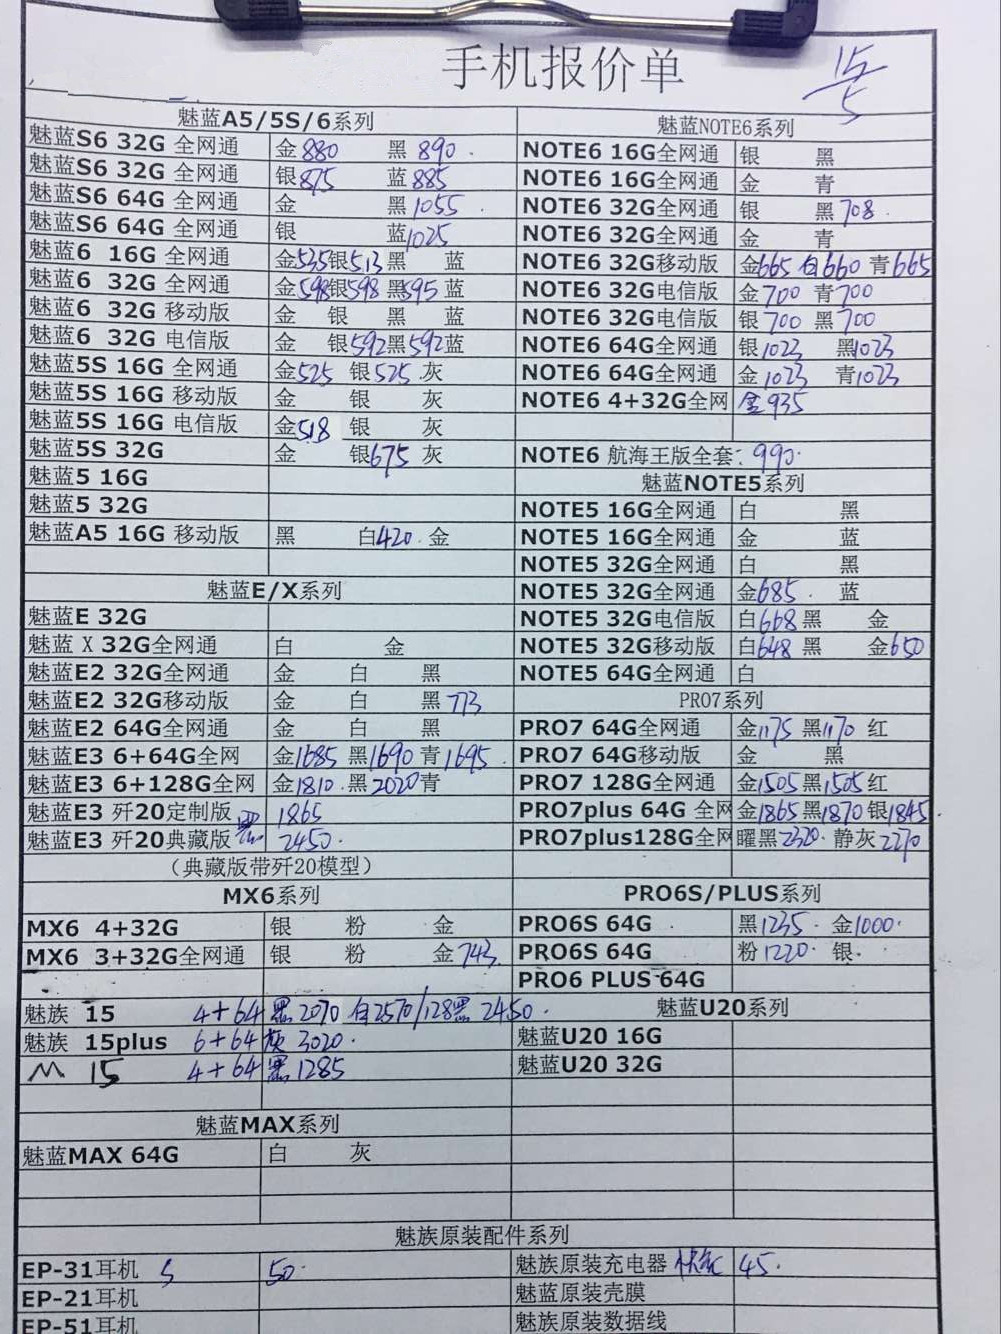 手机报价单
15/5
魅蓝A5/5S/6系列
魅蓝S6 32G 全网通 金880 黑890.
魅蓝S6 32G 全网通 银875 蓝885
魅蓝S6 64G 全网通 金 黑1055.
魅蓝S6 64G 全网通 银 蓝1025
魅蓝6 16G 全网通 金535银513黑 蓝
魅蓝6 32G 全网通 金598银598黑595蓝
魅蓝6 32G 移动版 金 银 黑 蓝
魅蓝6 32G 电信版 金 银592黑592蓝
魅蓝5S 16G 全网通 金525 银525灰
魅蓝5S 16G 移动版 金 银 灰
魅蓝5S 16G 电信版 金518 银 灰
魅蓝5S 32G 金 银675灰
魅蓝5 16G
魅蓝5 32G
魅蓝A5 16G 移动版 黑 白420.金
魅蓝E/X系列
魅蓝E 32G
魅蓝X 32G全网通 白 金
魅蓝E2 32G全网通 金 白 黑
魅蓝E2 32G移动版 金 白 黑773
魅蓝E2 64G全网通 金 白 黑
魅蓝E3 6+64G全网 金1685 黑1690青1695.
魅蓝E3 6+128G全网 金1810.黑2020青
魅蓝E3 歼20定制版 1865
魅蓝E3 歼20典藏版 黑 2450.
（典藏版带歼20模型）
MX6系列
MX6 4+32G 银 粉 金
MX6 3+32G全网通 银 粉 金743.
魅族 15 4+64 黑2070 白2570/128黑 2450.
魅族 15plus 6+64灰 3020.
M 15 4+64 黑1285
魅蓝MAX系列
魅蓝MAX 64G 白 灰
魅蓝NOTE6系列
NOTE6 16G全网通 银 黑
NOTE6 16G全网通 金 青
NOTE6 32G全网通 银 黑708.
NOTE6 32G全网通 金 青
NOTE6 32G移动版 金665 白660 青665
NOTE6 32G电信版 金700 青700
NOTE6 32G电信版 银700 黑700
NOTE6 64G全网通 银1023 黑1023
NOTE6 64G全网通 金1023 青1023
NOTE6 4+32G全网 金935
NOTE6 航海王版全套: 990.
魅蓝NOTE5系列
NOTE5 16G全网通 白 黑
NOTE5 16G全网通 金 蓝
NOTE5 32G全网通 白 黑
NOTE5 32G全网通 金685. 蓝
NOTE5 32G电信版 白668黑 金
NOTE5 32G移动版 白648黑 金650
NOTE5 64G全网通 白
PRO7系列
PRO7 64G全网通 金1175 黑1170 红
PRO7 64G移动版 金 黑
PRO7 128G全网通 金1505黑1505红
PRO7plus 64G 全网 金1865黑1870银1845
PRO7plus128G全网 曜黑2320.静灰2270
PRO6S/PLUS系列
PRO6S 64G 黑1235.金1000.
PRO6S 64G 粉1220.银.
PRO6 PLUS 64G
魅蓝U20系列
魅蓝U20 16G
魅蓝U20 32G
魅族原装配件系列
EP-31耳机 50. 魅族原装充电器 45.
EP-21耳机 魅蓝原装壳膜
EP-51耳机 魅族原装数据线